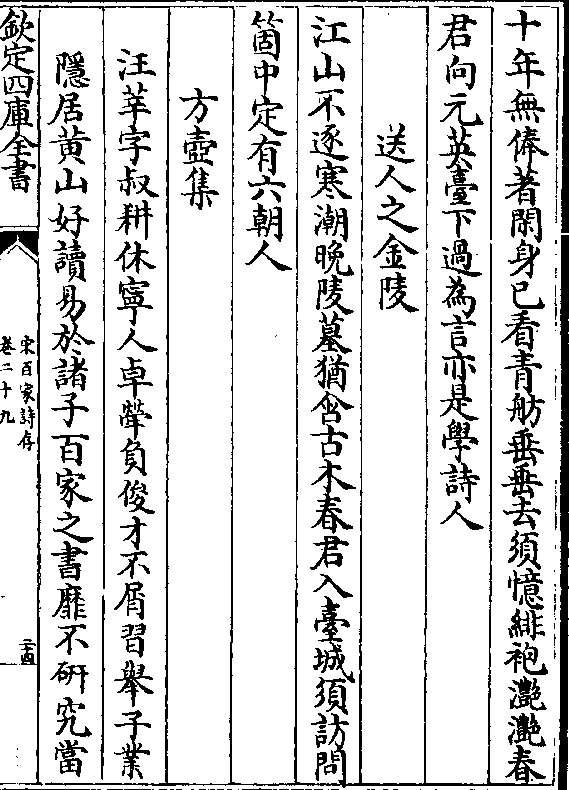 十年無俸著閑身已看青舫垂垂去須憶緋袍灔灔春
君向元英臺下過為言亦是學詩人
送人之金陵
江山不逐寒潮晚陵墓猶含古木春君入臺城須訪問
箇中定有六朝人
方壺集
汪莘字叔耕休寧人卓犖負俊才不屑習舉子業
隱居黃山好讀易於諸子百家之書靡不研究當
欽定四庫全書
宋百家詩存
卷二十九
二十四